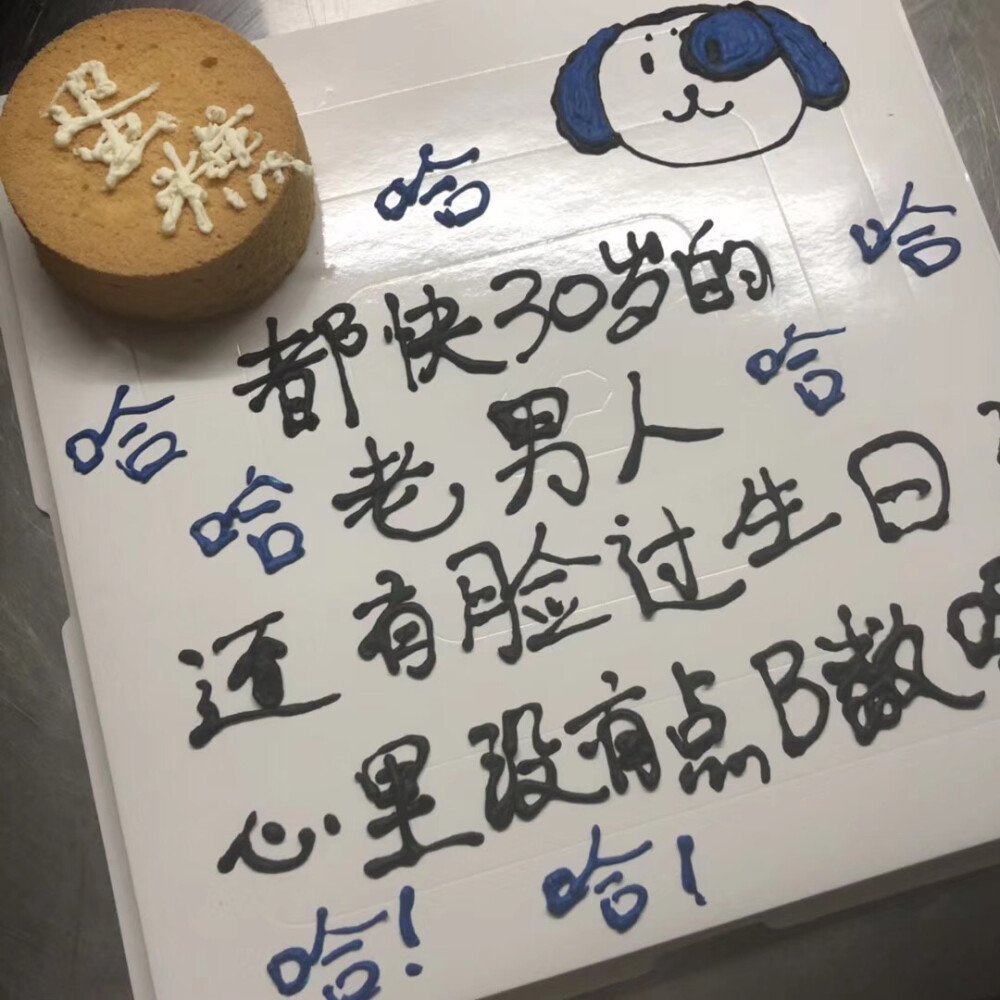 蛋糕
哈
哈
都快30岁的
哈
哈
哈
老男人
还有脸过生日
心里没有点B数
哈!
哈!